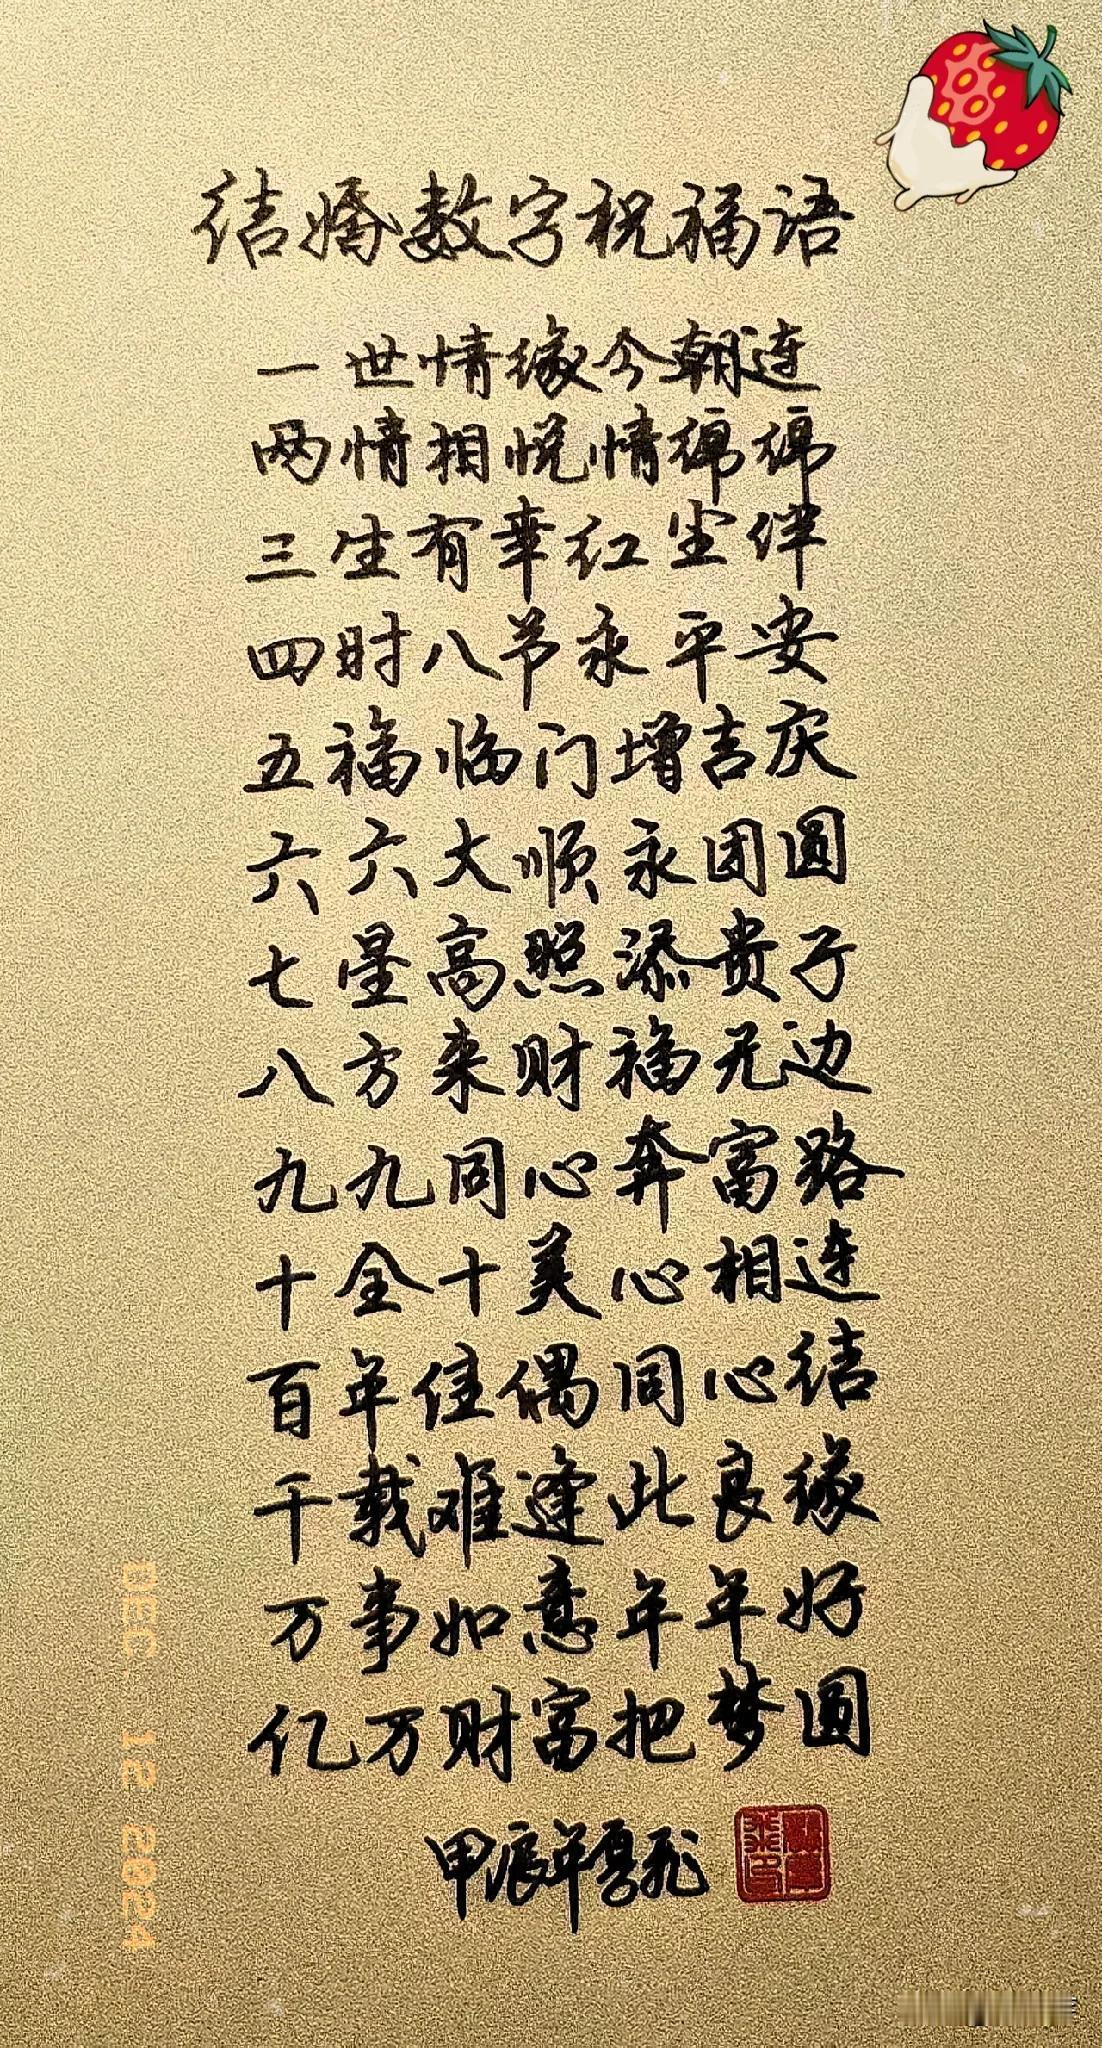 结婚数字祝福语
一世情缘今朝连
两情相悦情绵绵
三生有幸红尘伴
四时八节永平安
五福临门增吉庆
六六大顺永团圆
七星高照添贵子
八方来财福无边
九九同心奔富路
十全十美心相连
百年佳偶同心结
千载难逢此良缘
万事如意年年好
亿万财富把梦圆
甲辰年
DEC. 12 2024